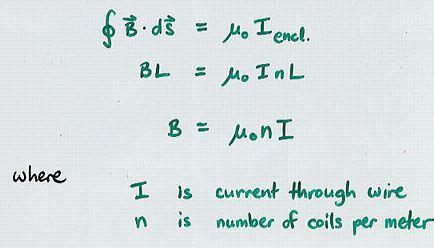 ∮ B⃗ · ds⃗ = μ₀ I encl.
BL = μ₀ I n L
B = μ₀ n I
where
I is current through wire
n is number of coils per meter